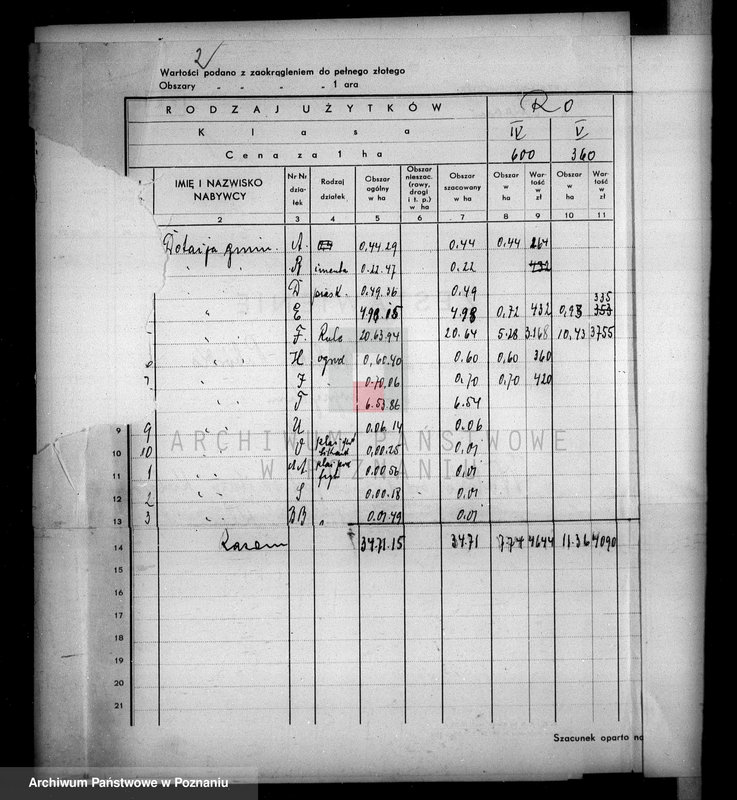 2
Wartości podano z zaokrągleniem do pełnego złotego
Obszary „ „ „ „ 1 ara
RODZAJ UŻYTKÓW RO
Klasa IV V
Cena za 1 ha 600 360
IMIĘ I NAZWISKO NABYWCY Nr Nr działek Rodzaj działek Obszar ogólny w ha Obszar nieszac. (rowy, drogi i t. p.) w ha Obszar szacowany w ha Obszar w ha Wartość w zł Obszar w ha Wartość w zł
2 3 4 5 6 7 8 9 10 11
Dotacja gmin. A. 0.44.29 0,44 0,44 264
„ „ R 0.22.47 0.22 432
D piask. 0.49.36 0.49
„ E 4.98.15 4.98 0,72 432 0,93 335 353
„ „ F. Rola 20.63.94 20.64 5.28 3.168 10,43 3755
6 „ „ H ogrod 0,60.40 0.60 0,60 360
7 „ „ J „ 0.70.06 0.70 0,70 420
„ „ T 6.53.86 6.54
9 „ „ U 0.06.14 0.06
10 „ „ 0,00.25 0,01
11 „ „ 0.00.56 0,01
12 „ „ S 0.00.18 0,01
13 „ „ BB „ 0.01.49 0.01
14 Razem 34.71.15 34.71 7.74 4644 11.36 4090
15
16
17
18
19
20
21
ARCHIWUM PAŃSTWOWE
W POZNANIU
Szacunek oparto na
Archiwum Państwowe w Poznaniu